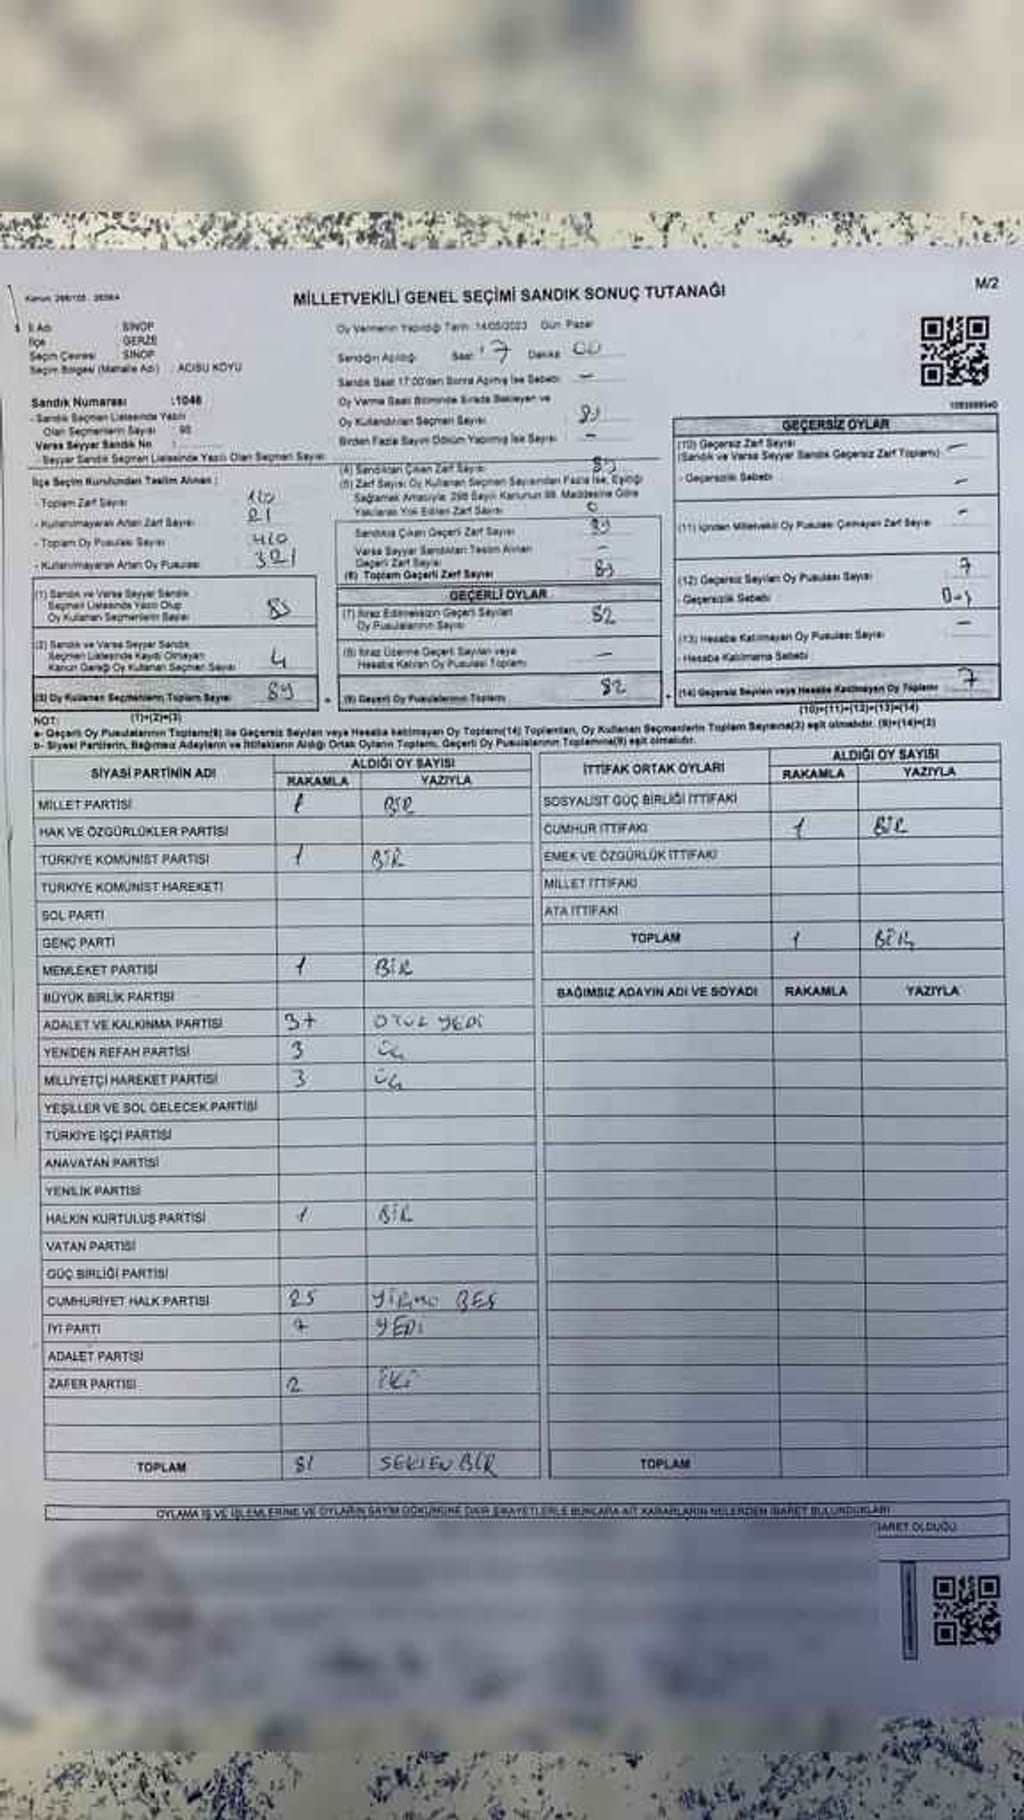 MİLLETVEKİLİ GENEL SEÇİMİ SANDIK SONUÇ TUTANAĞI
M/2
İl Adı : SİNOP
İlçe : GERZE
Seçim Çevresi : SİNOP
Seçim Bölgesi (Mahalle Adı) : ACISU KÖYÜ
Sandık Numarası : 1046
- Sandık Seçmen Listesinde Yazılı
Olan Seçmenlerin Sayısı : 98
Varsa Seyyar Sandık No :
- Seyyar Sandık Seçmen Listesinde Yazılı Olan Seçmen Sayısı
Oy Vermenin Yapıldığı Tarih: 14/05/2023 Gün: Pazar
Sandığın Açıldığı Saat 17 Dakika 00
Sandık Saat 17:00'den Sonra Açılmış İse Sebebi: -
Oy Verme Saati Bitiminde Sırada Bekleyen ve
Oy Kullandırılan Seçmen Sayısı
Birden Fazla Sayım Döküm Yapılmış İse Sayısı: -
İlçe Seçim Kurulundan Teslim Alınan :
- Toplam Zarf Sayısı 110
- Kullanılmayarak Artan Zarf Sayısı 21
- Toplam Oy Pusulası Sayısı 410
- Kullanılmayarak Artan Oy Pusulası 321
(1) Sandık ve Varsa Seyyar Sandık
Seçmen Listesinde Yazılı Olup
Oy Kullanan Seçmenlerin Sayısı 85
(2) Sandık ve Varsa Seyyar Sandık
Seçmen Listesinde Kaydı Olmayan
Kanun Gereği Oy Kullanan Seçmen Sayısı 4
(3) Oy Kullanan Seçmenlerin Toplam Sayısı 89
(1)+(2)=(3)
(4) Sandıktan Çıkan Zarf Sayısı 89
(5) Zarf Sayısı Oy Kullanan Seçmen Sayısından Fazla İse, Eşitliği
Sağlamak Amacıyla; 298 Sayılı Kanunun 98. Maddesine Göre
Yakılarak Yok Edilen Zarf Sayısı 0
Sandıkta Çıkan Geçerli Zarf Sayısı 89
Varsa Seyyar Sandıktan Teslim Alınan
Geçerli Zarf Sayısı -
(6) Toplam Geçerli Zarf Sayısı 89
GEÇERLİ OYLAR
(7) İtiraz Edilmeksizin Geçerli Sayılan
Oy Pusulalarının Sayısı 82
(8) İtiraz Üzerine Geçerli Sayılan veya
Hesaba Katılan Oy Pusulası Toplamı -
(9) Geçerli Oy Pusulalarının Toplamı 82
GEÇERSİZ OYLAR
(10) Geçersiz Zarf Sayısı
(Sandık ve Varsa Seyyar Sandık Geçersiz Zarf Toplamı) -
- Geçersizlik Sebebi -
(11) İçinden Milletvekili Oy Pusulası Çıkmayan Zarf Sayısı -
(12) Geçersiz Sayılan Oy Pusulası Sayısı 7
- Geçersizlik Sebebi
(13) Hesaba Katılmayan Oy Pusulası Sayısı -
- Hesaba Katılmama Sebebi
(14) Geçersiz Sayılan veya Hesaba Katılmayan Oy Toplamı 7
(10)+(11)+(12)+(13)=(14)
NOT:
a- Geçerli Oy Pusulalarının Toplamı(9) ile Geçersiz Sayılan veya Hesaba katılmayan Oy Toplamı(14) Toplamları, Oy Kullanan Seçmenlerin Toplam Sayısına(3) eşit olmalıdır. (9)+(14)=(3)
b- Siyasi Partilerin, Bağımsız Adayların ve İttifakların Aldığı Ortak Oyların Toplamı, Geçerli Oy Pusulalarının Toplamına(9) eşit olmalıdır.
SİYASİ PARTİNİN ADI ALDIĞI OY SAYISI
RAKAMLA YAZIYLA
MİLLET PARTİSİ 1 BİR
HAK VE ÖZGÜRLÜKLER PARTİSİ
TÜRKİYE KOMÜNİST PARTİSİ 1 BİR
TÜRKİYE KOMÜNİST HAREKETİ
SOL PARTİ
GENÇ PARTİ
MEMLEKET PARTİSİ 1 BİR
BÜYÜK BİRLİK PARTİSİ
ADALET VE KALKINMA PARTİSİ 37 OTUZ YEDİ
YENİDEN REFAH PARTİSİ 3 ÜÇ
MİLLİYETÇİ HAREKET PARTİSİ 3 ÜÇ
YEŞİLLER VE SOL GELECEK PARTİSİ
TÜRKİYE İŞÇİ PARTİSİ
ANAVATAN PARTİSİ
YENİLİK PARTİSİ
HALKIN KURTULUŞ PARTİSİ 1 BİR
VATAN PARTİSİ
GÜÇ BİRLİĞİ PARTİSİ
CUMHURİYET HALK PARTİSİ 25 YİRMİ BEŞ
İYİ PARTİ 7 YEDİ
ADALET PARTİSİ
ZAFER PARTİSİ 2 İKİ
TOPLAM 81 SEKSEN BİR
İTTİFAK ORTAK OYLARI ALDIĞI OY SAYISI
RAKAMLA YAZIYLA
SOSYALİST GÜÇ BİRLİĞİ İTTİFAKI
CUMHUR İTTİFAKI 1 BİR
EMEK VE ÖZGÜRLÜK İTTİFAKI
MİLLET İTTİFAKI
ATA İTTİFAKI
TOPLAM 1 BİR
BAĞIMSIZ ADAYIN ADI VE SOYADI RAKAMLA YAZIYLA
TOPLAM
OYLAMA İŞ VE İŞLEMLERİNE VE OYLARIN SAYIM DÖKÜMÜNE DAİR ŞİKAYETLERLE BUNLARA AİT KARARLARIN NELERDEN İBARET BULUNDUKLARI
İBARET OLDUĞU